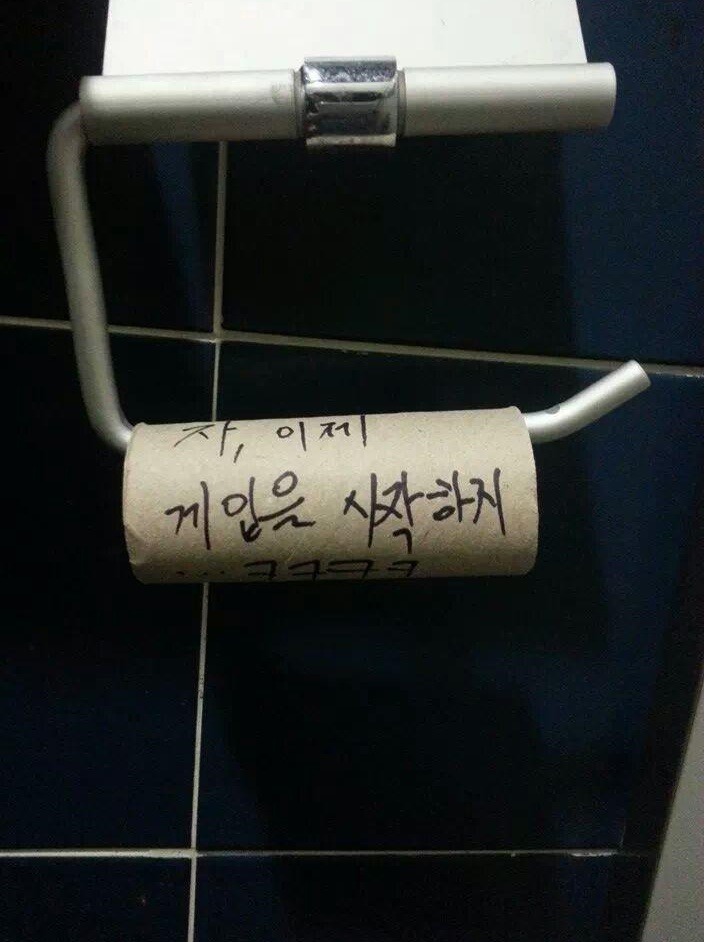 자, 이제
게임을 시작하지
...ㅋㅋㅋㅋ